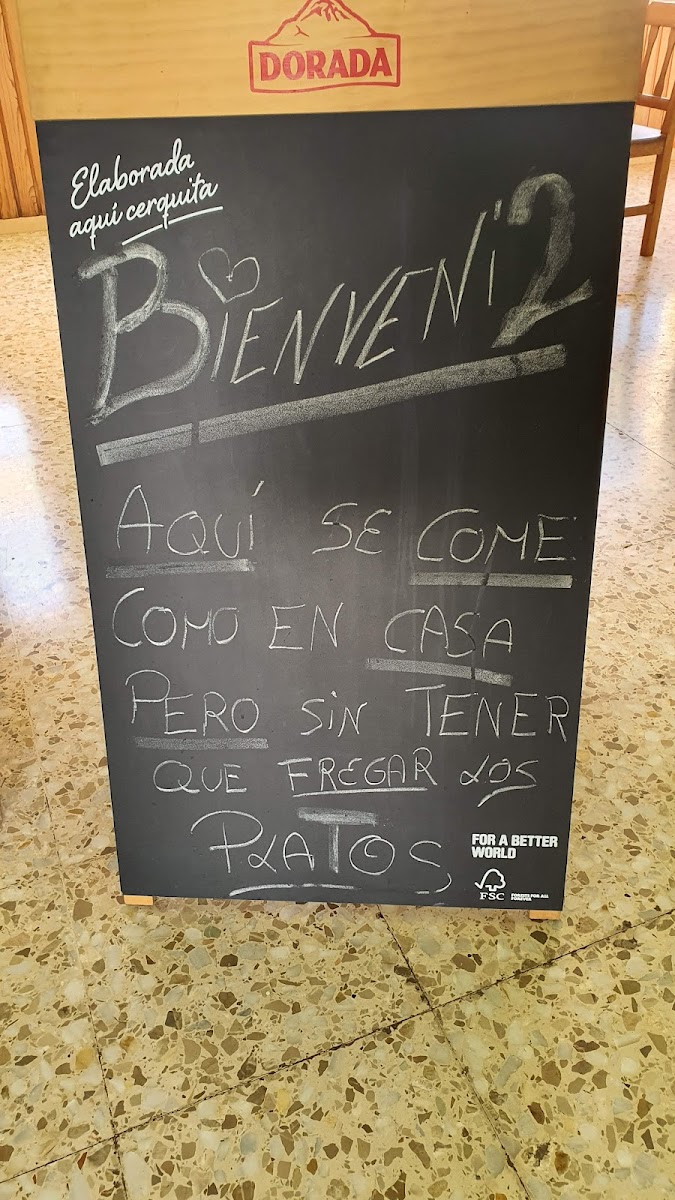 DORADA
Elaborada
aquí cerquita
BIENVENi2
AQUÍ SE COME
COMO EN CASA
PERO SiN TENER
QUE FREGAR LOS
PLATOS
FOR A BETTER
WORLD
FSC
FORESTS FOR ALL
FOREVER